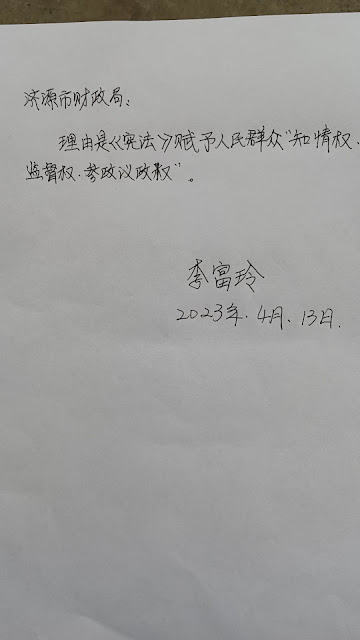 济源市财政局：
理由是《宪法》赋予人民群众“知情权、
监督权、参政议政权”。
李富玲
2023年.4月.13日.